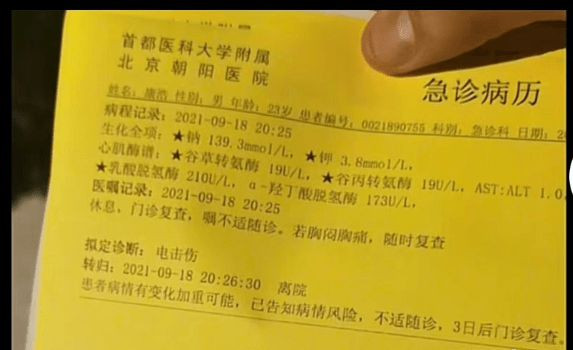 首都医科大学附属
北京朝阳医院
急诊病历
姓名: 康浩 性别: 男 年龄: 23岁 患者编号: 0021890755 科别: 急诊科 日期: 20
病程记录: 2021-09-18 20:25
生化全项: ★钠 139.3mmol/L, ★钾 3.8mmol/L,
心肌酶谱: ★谷草转氨酶 19U/L, ★谷丙转氨酶 19U/L, AST:ALT 1.0,
★乳酸脱氢酶 210U/L, α-羟丁酸脱氢酶 173U/L,
医嘱记录: 2021-09-18 20:25
休息, 门诊复查, 嘱不适随诊. 若胸闷胸痛, 随时复查
拟定诊断: 电击伤
转归: 2021-09-18 20:26:30 离院
患者病情有变化加重可能, 已告知病情风险, 不适随诊, 3日后门诊复查。